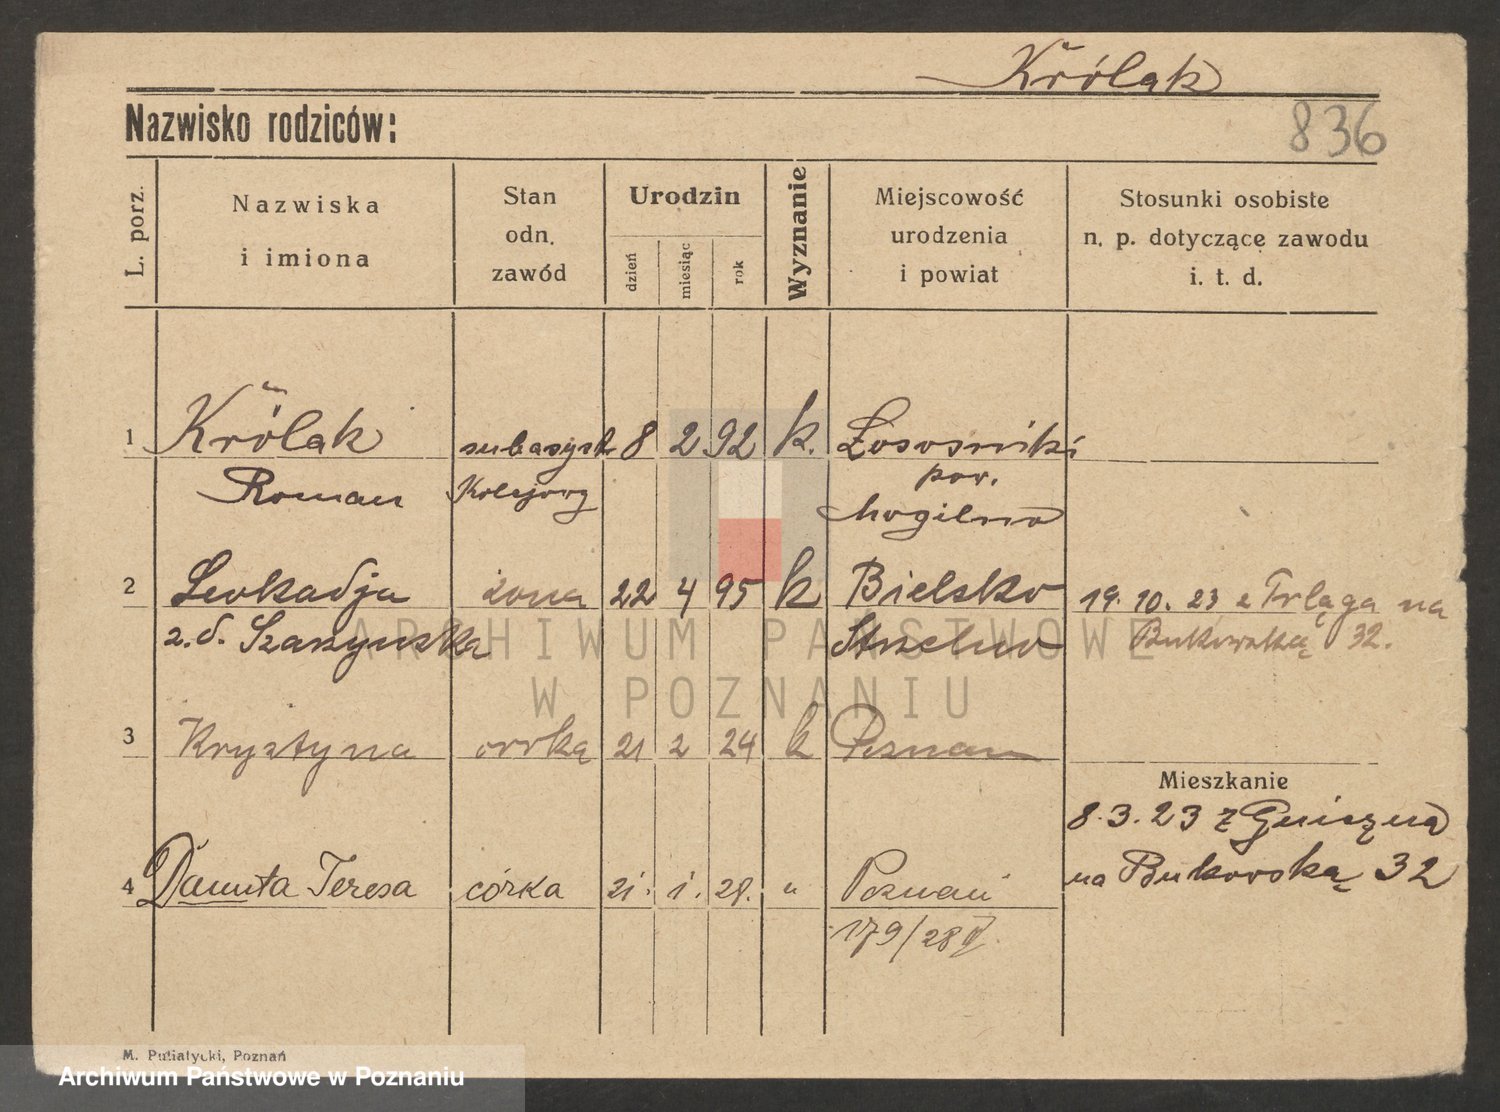 Królak
836
Nazwisko rodziców:
L. porz.
Nazwiska
i imiona
Stan
odn.
zawód
Urodzin
dzień
miesiąc
rok
Wyznanie
Miejscowość
urodzenia
i powiat
Stosunki osobiste
n. p. dotyczące zawodu
i. t. d.
1 Królak subasyst 8 2 92 k. Łosośniki
Roman Kolejowy pow.
Mogilno
2 Leokadja żona 22 4 95 k Bielsko 19. 10. 23 z Trląga na
z. d. Szarzyńska Strzelno Bukowską 32.
3 Krystyna córka 21 2 24 k Poznań
Mieszkanie
8. 3. 23 z Gniezna
na Bukowską 32
4 Danuta Teresa córka 21. 1. 28. " Poznań
179/28
ARCHIWUM PAŃSTWOWE
W POZNANIU
M. Putiatycki, Poznań
Archiwum Państwowe w Poznaniu